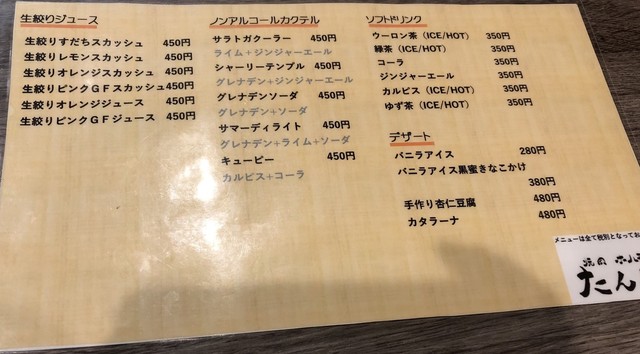 生絞りジュース
生絞りすだちスカッシュ 450円
生絞りレモンスカッシュ 450円
生絞りオレンジスカッシュ 450円
生絞りピンクGFスカッシュ 450円
生絞りオレンジジュース 450円
生絞りピンクGFジュース 450円
ノンアルコールカクテル
サラトガクーラー 450円
ライム+ジンジャーエール
シャーリーテンプル 450円
グレナデン+ジンジャーエール
グレナデンソーダ 450円
グレナデン+ソーダ
サマーディライト 450円
グレナデン+ライム+ソーダ
キューピー 450円
カルピス+コーラ
ソフトドリンク
ウーロン茶(ICE/HOT) 350円
緑茶(ICE/HOT) 350円
コーラ 350円
ジンジャーエール 350円
カルピス(ICE/HOT) 350円
ゆず茶(ICE/HOT) 350円
デザート
バニラアイス 280円
バニラアイス黒蜜きなこかけ
380円
手作り杏仁豆腐 480円
カタラーナ 480円
メニューは全て税別となってお
焼肉 ホル
たん